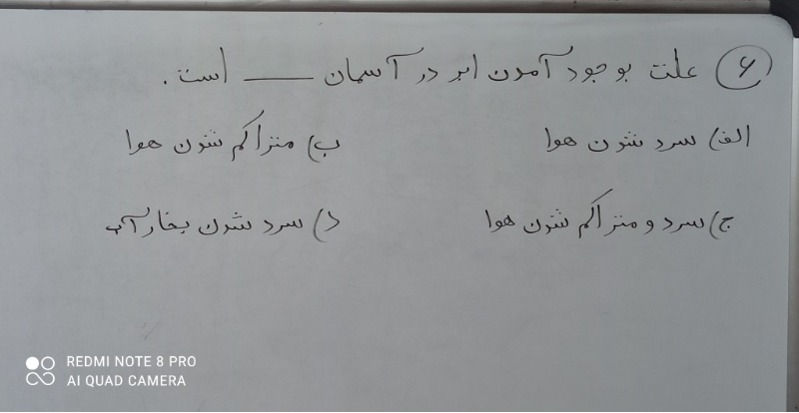 ۶) علت بوجود آمدن ابر در آسمان ــــ است .
الف) سرد شدن هوا ب) متراکم شدن هوا
ج) سرد و متراکم شدن هوا د) سرد شدن بخار آب
REDMI NOTE 8 PRO
AI QUAD CAMERA